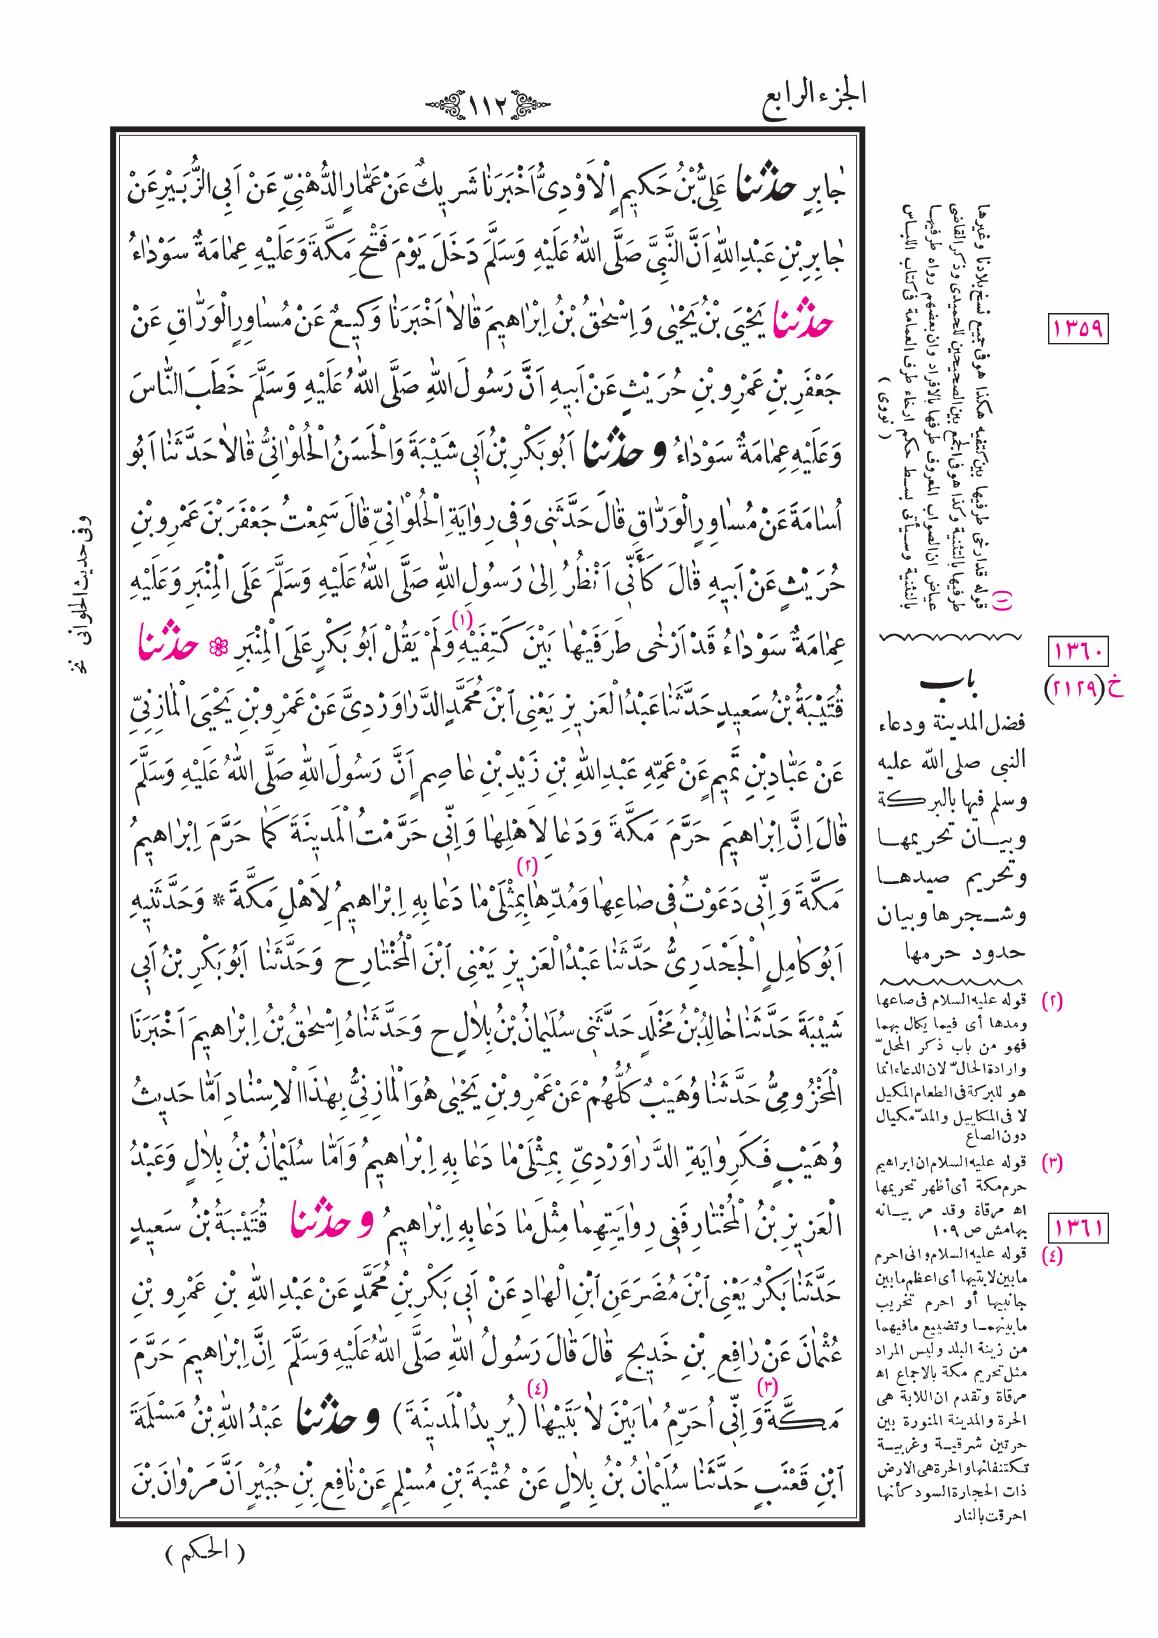 الجزء الرابع
﴿١١٢﴾
جَابِرٍ حدثنا عَلِيُّ بْنُ حَكِيمٍ الْاَوْدِيُّ اَخْبَرَنَا شَرِيكٌ عَنْ عَمَّارٍ الدُّهْنِيِّ عَنْ اَبِي الزُّبَيْرِ عَنْ
جَابِرِ بْنِ عَبْدِ اللهِ اَنَّ النَّبِيَّ صَلَّى اللهُ عَلَيْهِ وَسَلَّمَ دَخَلَ يَوْمَ فَتْحِ مَكَّةَ وَعَلَيْهِ عِمَامَةٌ سَوْدَاءُ
حدثنا يَحْيَى بْنُ يَحْيٰى وَاِسْحٰقُ بْنُ اِبْرَاهِيمَ قَالَا اَخْبَرَنَا وَكِيعٌ عَنْ مُسَاوِرٍ الْوَرَّاقِ عَنْ
جَعْفَرِ بْنِ عَمْرِو بْنِ حُرَيْثٍ عَنْ اَبِيهِ اَنَّ رَسُولَ اللهِ صَلَّى اللهُ عَلَيْهِ وَسَلَّمَ خَطَبَ النَّاسَ
وَعَلَيْهِ عِمَامَةٌ سَوْدَاءُ و حدثنا اَبُو بَكْرِ بْنُ اَبِي شَيْبَةَ وَالْحَسَنُ الْحُلْوَانِيُّ قَالَا حَدَّثَنَا اَبُو
اُسَامَةَ عَنْ مُسَاوِرٍ الْوَرَّاقِ قَالَ حَدَّثَنِي وَفِي رِوَايَةِ الْحُلْوَانِيِّ قَالَ سَمِعْتُ جَعْفَرَ بْنَ عَمْرِو بْنِ
حُرَيْثٍ عَنْ اَبِيهِ قَالَ كَأَنِّي اَنْظُرُ اِلىٰ رَسُولِ اللهِ صَلَّى اللهُ عَلَيْهِ وَسَلَّمَ عَلَى الْمِنْبَرِ وَعَلَيْهِ
عِمَامَةٌ سَوْدَاءُ قَدْ اَرْخٰى طَرَفَيْهَا بَيْنَ كَتِفَيْهِ (١) وَلَمْ يَقُلْ اَبُو بَكْرٍ عَلَى الْمِنْبَرِ ❁ حدثنا
قُتَيْبَةُ بْنُ سَعِيدٍ حَدَّثَنَا عَبْدُ الْعَزِيزِ يَعْنِي ابْنَ مُحَمَّدٍ الدَّرَاوَرْدِيَّ عَنْ عَمْرِو بْنِ يَحْيَى الْمَازِنِيِّ
عَنْ عَبَّادِ بْنِ تَمِيمٍ عَنْ عَمِّهِ عَبْدِ اللهِ بْنِ زَيْدِ بْنِ عَاصِمٍ اَنَّ رَسُولَ اللهِ صَلَّى اللهُ عَلَيْهِ وَسَلَّمَ
قَالَ اِنَّ اِبْرَاهِيمَ حَرَّمَ مَكَّةَ وَدَعَا لِاَهْلِهَا وَاِنِّي حَرَّمْتُ الْمَدِينَةَ كَمَا حَرَّمَ اِبْرَاهِيمُ
مَكَّةَ وَاِنِّي دَعَوْتُ فِي صَاعِهَا وَمُدِّهَا (٢) بِمِثْلَيْ مَا دَعَا بِهِ اِبْرَاهِيمُ لِاَهْلِ مَكَّةَ * وَحَدَّثَنِيهِ
اَبُو كَامِلٍ الْجَحْدَرِيُّ حَدَّثَنَا عَبْدُ الْعَزِيزِ يَعْنِي ابْنَ الْمُخْتَارِ ح وَحَدَّثَنَا اَبُو بَكْرِ بْنُ اَبِي
شَيْبَةَ حَدَّثَنَا خَالِدُ بْنُ مَخْلَدٍ حَدَّثَنِي سُلَيْمَانُ بْنُ بِلَالٍ ح وَحَدَّثَنَاهُ اِسْحٰقُ بْنُ اِبْرَاهِيمَ اَخْبَرَنَا
الْمَخْزُومِيُّ حَدَّثَنَا وُهَيْبٌ كُلُّهُمْ عَنْ عَمْرِو بْنِ يَحْيٰى هُوَ الْمَازِنِيُّ بِهٰذَا الْاِسْنَادِ اَمَّا حَدِيثُ
وُهَيْبٍ فَكَرِوَايَةِ الدَّرَاوَرْدِيِّ بِمِثْلَيْ مَا دَعَا بِهِ اِبْرَاهِيمُ وَاَمَّا سُلَيْمَانُ بْنُ بِلَالٍ وَعَبْدُ
الْعَزِيزِ بْنُ الْمُخْتَارِ فَفِي رِوَايَتِهِمَا مِثْلَ مَا دَعَا بِهِ اِبْرَاهِيمُ و حدثنا قُتَيْبَةُ بْنُ سَعِيدٍ
حَدَّثَنَا بَكْرٌ يَعْنِي ابْنَ مُضَرَ عَنِ ابْنِ الْهَادِ عَنْ اَبِي بَكْرِ بْنِ مُحَمَّدٍ عَنْ عَبْدِ اللهِ بْنِ عَمْرِو بْنِ
عُثْمَانَ عَنْ رَافِعِ بْنِ خَدِيجٍ قَالَ قَالَ رَسُولُ اللهِ صَلَّى اللهُ عَلَيْهِ وَسَلَّمَ اِنَّ اِبْرَاهِيمَ حَرَّمَ
مَكَّةَ (٣) وَاِنِّي اُحَرِّمُ مَا بَيْنَ لَابَتَيْهَا (٤) (يُرِيدُ الْمَدِينَةَ) و حدثنا عَبْدُ اللهِ بْنُ مَسْلَمَةَ
ابْنِ قَعْنَبٍ حَدَّثَنَا سُلَيْمَانُ بْنُ بِلَالٍ عَنْ عُتْبَةَ بْنِ مُسْلِمٍ عَنْ نَافِعِ بْنِ جُبَيْرٍ اَنَّ مَرْوَانَ بْنَ
( الحكم )
وفي حديث الحلواني نخ
١٣٥٩
(١) قوله قد ارخى طرفيها بين كتفيه هكذا هو في جميع نسخ بلادنا وغيرها
طرفيها بالتثنية وكذا هو في الجمع بين الصحيحين للحميدي وذكر القاضي
عياض ان الصواب المعروف طرفها بالافراد وان بعضهم رواه طرفيها
بالتثنية وسيأتي بسط حكم ارخاء طرف العمامة في كتاب اللباس
( نووي )
١٣٦٠
خ (٢١٢٩)
باب
فضل المدينة ودعاء
النبي صلى الله عليه
وسلم فيها بالبركة
وبيان تحريمها
وتحريم صيدها
وشجرها وبيان
حدود حرمها
(٢) قوله عليه السلام في صاعها
ومدها أي فيما يكال بهما
فهو من باب ذكر المحلّ
وارادة الحالّ لان الدعاء انما
هو للبركة في الطعام المكيل
لا في المكاييل والمدّ مكيال
دون الصاع
(٣) قوله عليه السلام ان ابراهيم
حرم مكة أي أظهر تحريمها
اه مرقاة وقد مر بيانه
بهامش ص ١٠٩
١٣٦١
(٤) قوله عليه السلام واني احرم
ما بين لابتيها أي اعظم ما بين
جانبيها أو احرم تخريب
ما بينهما وتضييع ما فيهما
من زينة البلد وليس المراد
مثل تحريم مكة بالاجماع اه
مرقاة وتقدم ان اللابة هي
الحرة والمدينة المنورة بين
حرتين شرقية وغربية
تكتنفانها والحرة هي الارض
ذات الحجارة السود كأنها
احرقت بالنار